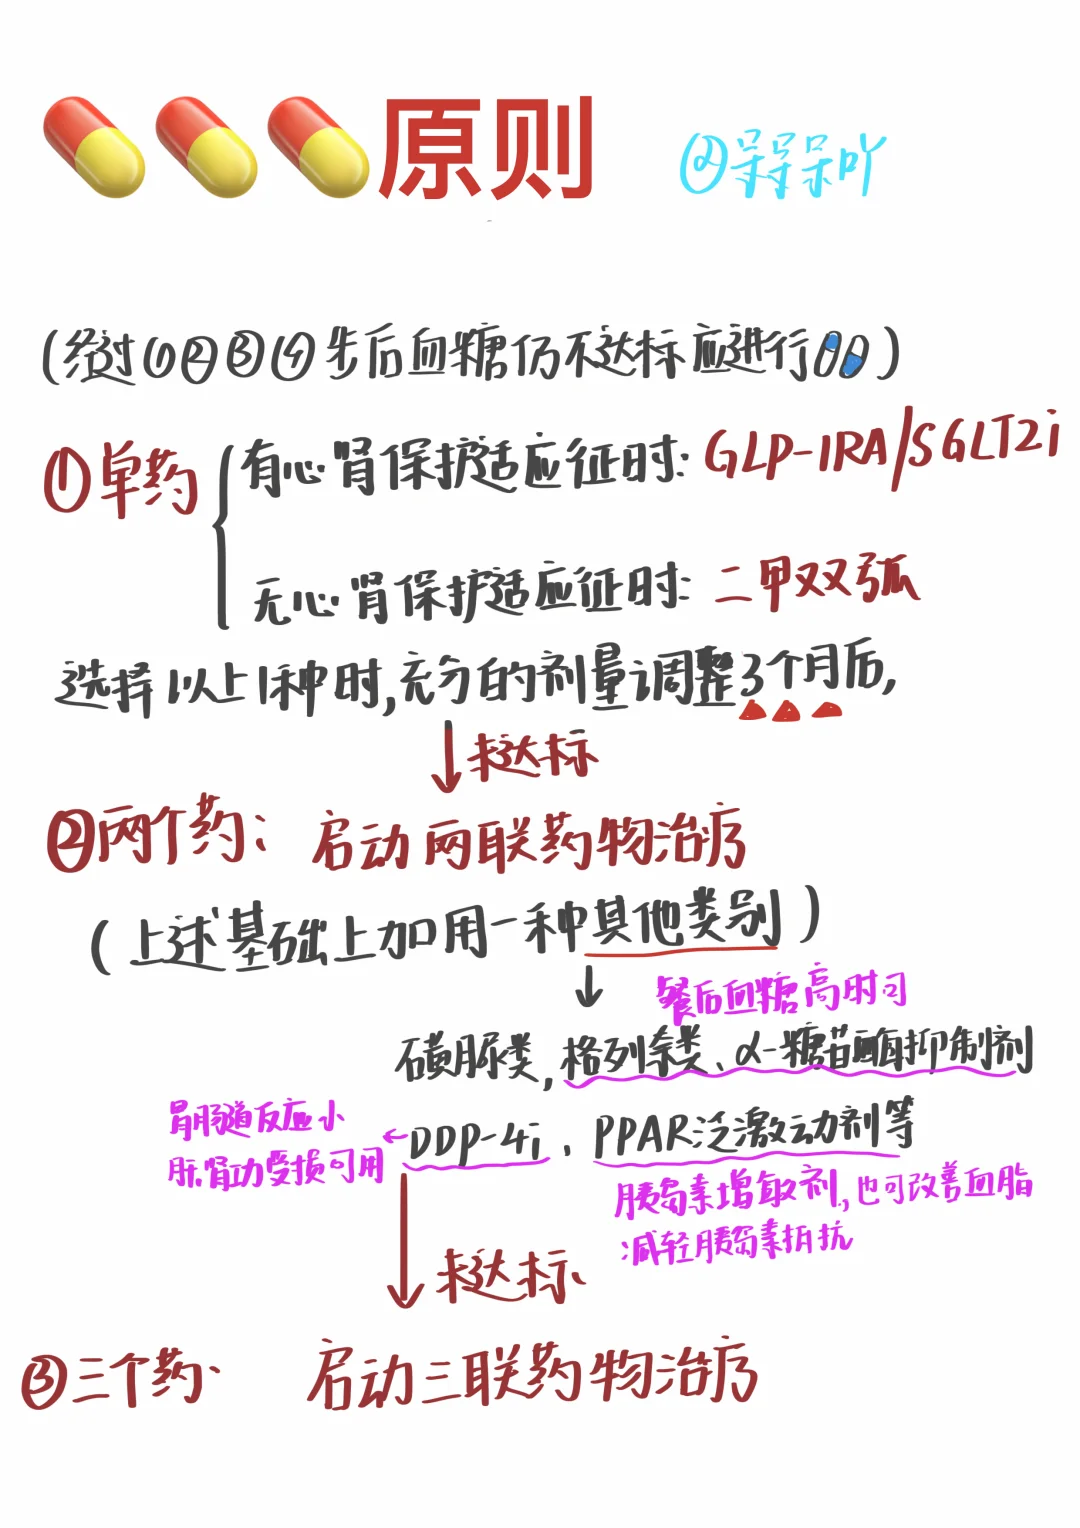 原则
@呆呆呆吖
(经过①②③④步后血糖仍不达标应进行)
①单药
有心肾保护适应征时: GLP-1RA/SGLT2i
无心肾保护适应征时: 二甲双弧
选择以上1种时,充分的剂量调整3个月后,
未达标
②两个药: 启动两联药物治疗
(上述基础上加用一种其他类别)
餐后血糖高时可
磺脲类,格列奈类、α-糖苷酶抑制剂
胃肠道反应小
肝.肾功受损可用
DDP-4i、PPAR泛激动剂等
胰岛素增敏剂,也可改善血脂
减轻胰岛素抵抗
未达标
③三个药: 启动三联药物治疗